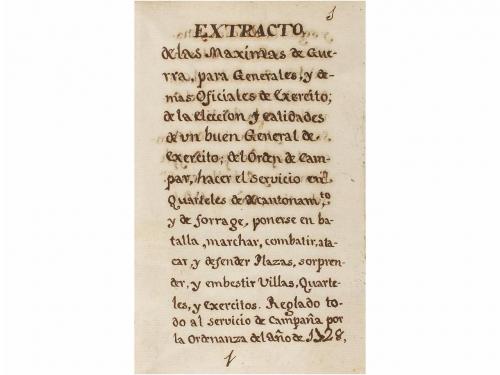 1
EXTRACTO,
de las Maximas de Gue-
rra, para Generales, y de-
mas Oficiales de Exercito;
de la Eleccion y Calidades
de un buen General de
Exercito; del Órden de Cam-
par, hacer el servicio en
Quarteles de Acantonam.to
y de forrage, ponerse en ba-
talla, marchar, combatir, ata-
car, y defender Plazas, sorpren-
der, y embestir Villas, Quarte-
les, y Exercitos. Reglado to-
do al servicio de Campaña por
la Ordenanza del año de 1728,